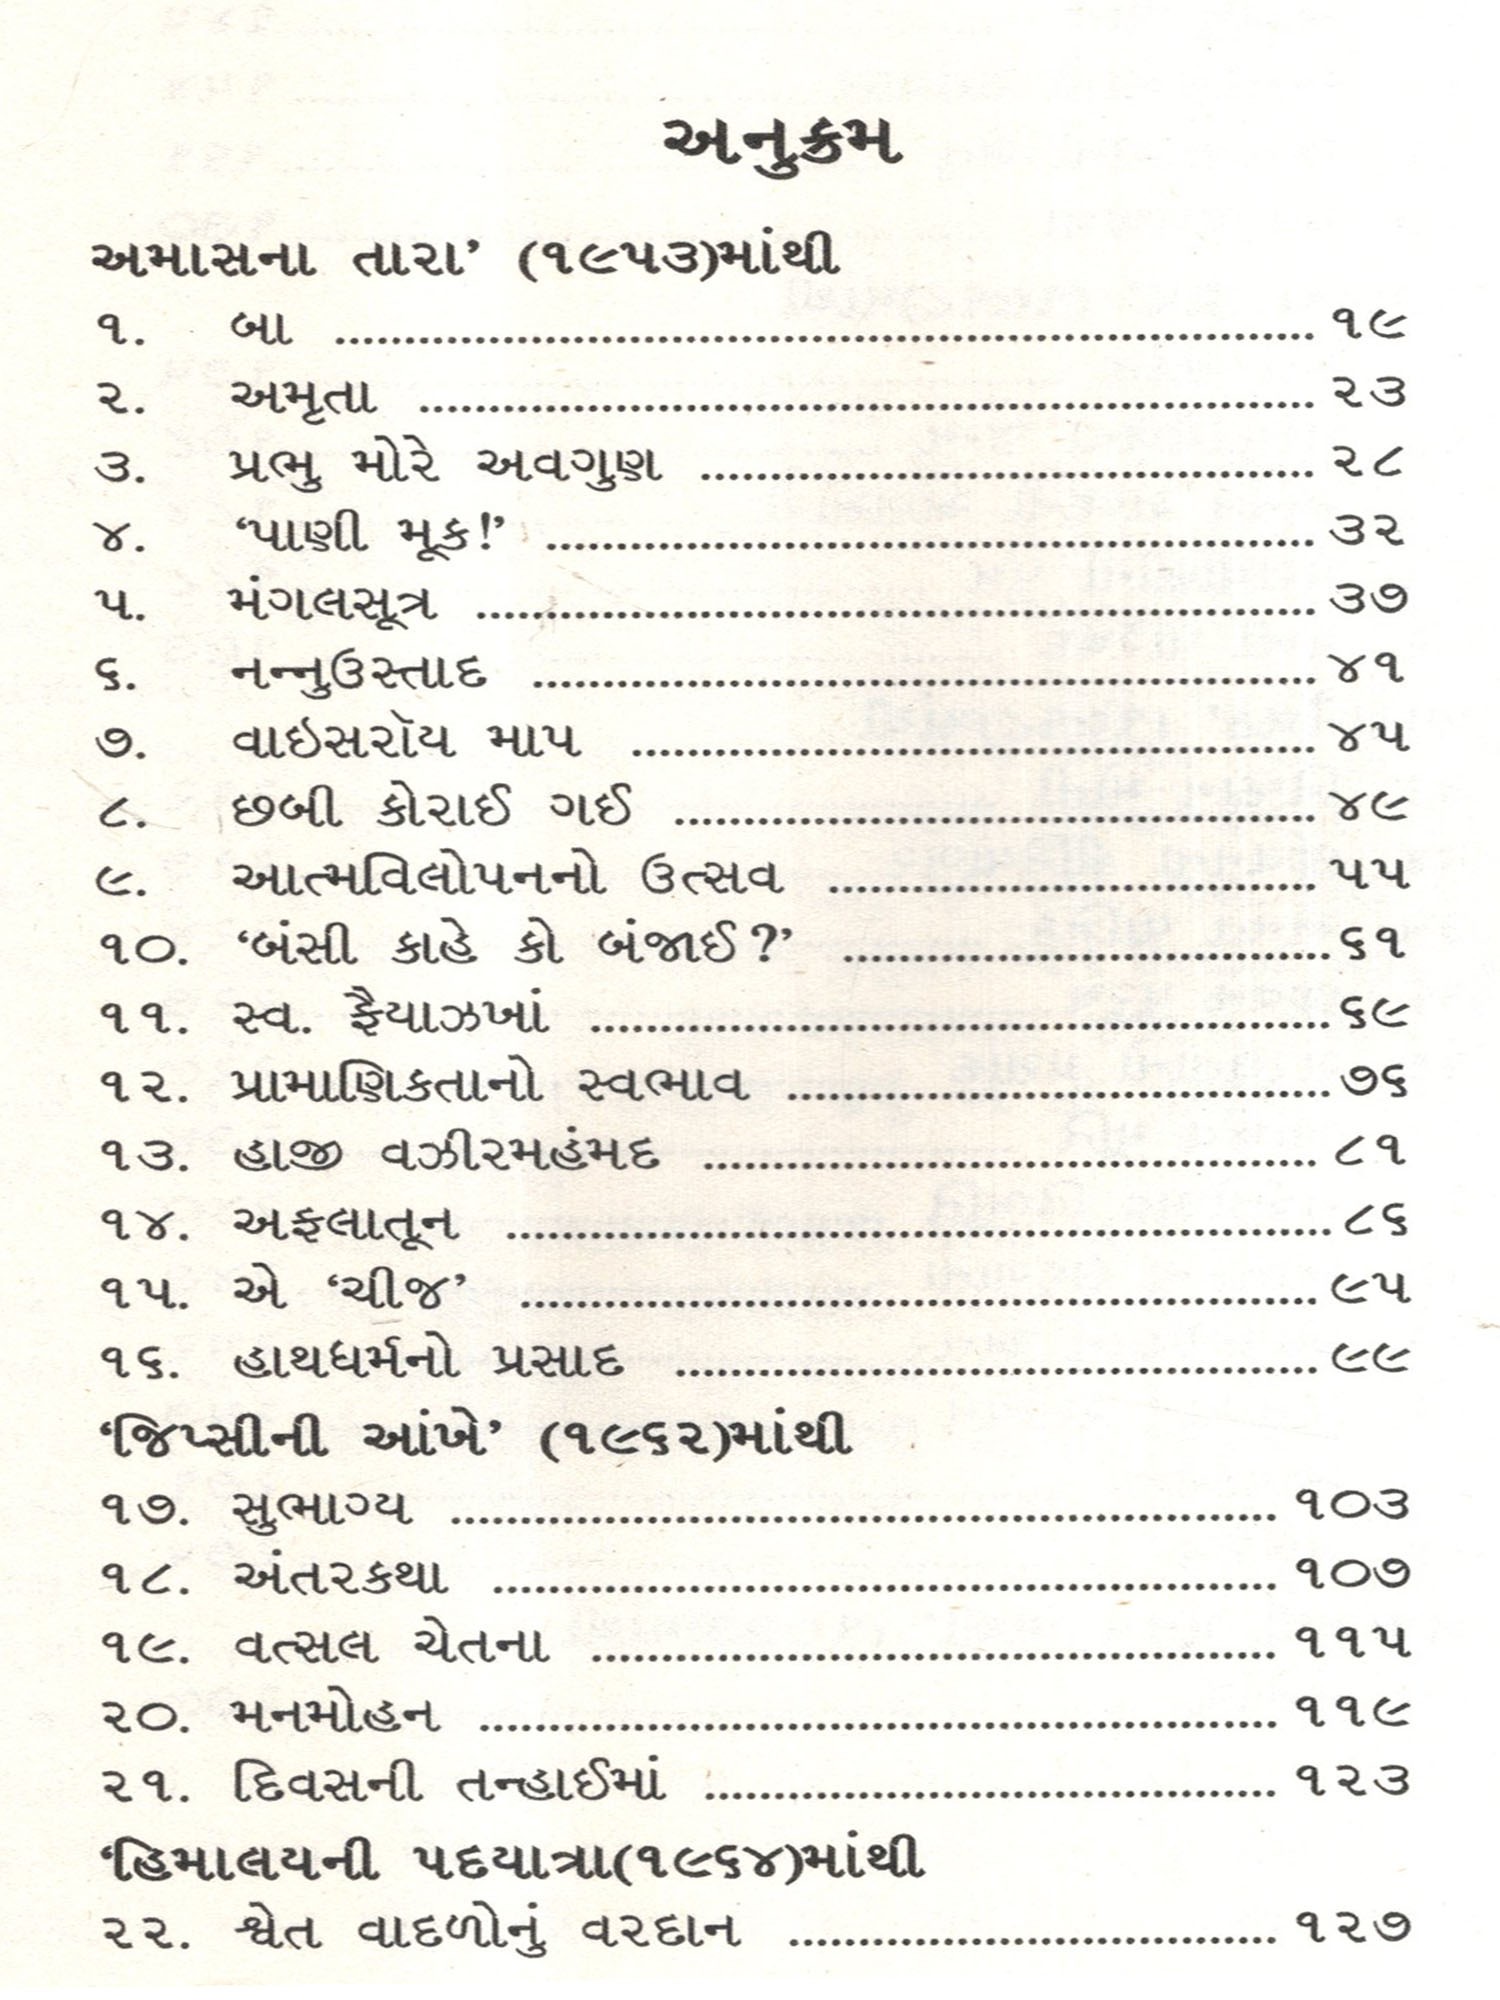 અનુક્રમ
અમાસના તારા’ (૧૯૫૩)માંથી
૧. બા ........................................ ૧૯
૨. અમૃતા ........................................ ૨૩
૩. પ્રભુ મોરે અવગુણ ........................................ ૨૮
૪. ‘પાણી મૂક!’ ........................................ ૩૨
૫. મંગલસૂત્ર ........................................ ૩૭
૬. નન્નુઉસ્તાદ ........................................ ૪૧
૭. વાઇસરૉય માપ ........................................ ૪૫
૮. છબી કોરાઈ ગઈ ........................................ ૪૯
૯. આત્મવિલોપનનો ઉત્સવ ........................................ ૫૫
૧૦. ‘બંસી કાહે કો બંજાઈ?’ ........................................ ૬૧
૧૧. સ્વ. ફૈયાઝખાં ........................................ ૬૯
૧૨. પ્રામાણિકતાનો સ્વભાવ ........................................ ૭૬
૧૩. હાજી વઝીરમહંમદ ........................................ ૮૧
૧૪. અફલાતૂન ........................................ ૮૬
૧૫. એ ‘ચીજ’ ........................................ ૯૫
૧૬. હાથધર્મનો પ્રસાદ ........................................ ૯૯
‘જિપ્સીની આંખે’ (૧૯૬૨)માંથી
૧૭. સુભાગ્ય ........................................ ૧૦૩
૧૮. અંતરકથા ........................................ ૧૦૭
૧૯. વત્સલ ચેતના ........................................ ૧૧૫
૨૦. મનમોહન ........................................ ૧૧૯
૨૧. દિવસની તન્હાઈમાં ........................................ ૧૨૩
‘હિમાલયની પદયાત્રા(૧૯૬૪)માંથી
૨૨. શ્વેત વાદળોનું વરદાન ........................................ ૧૨૭